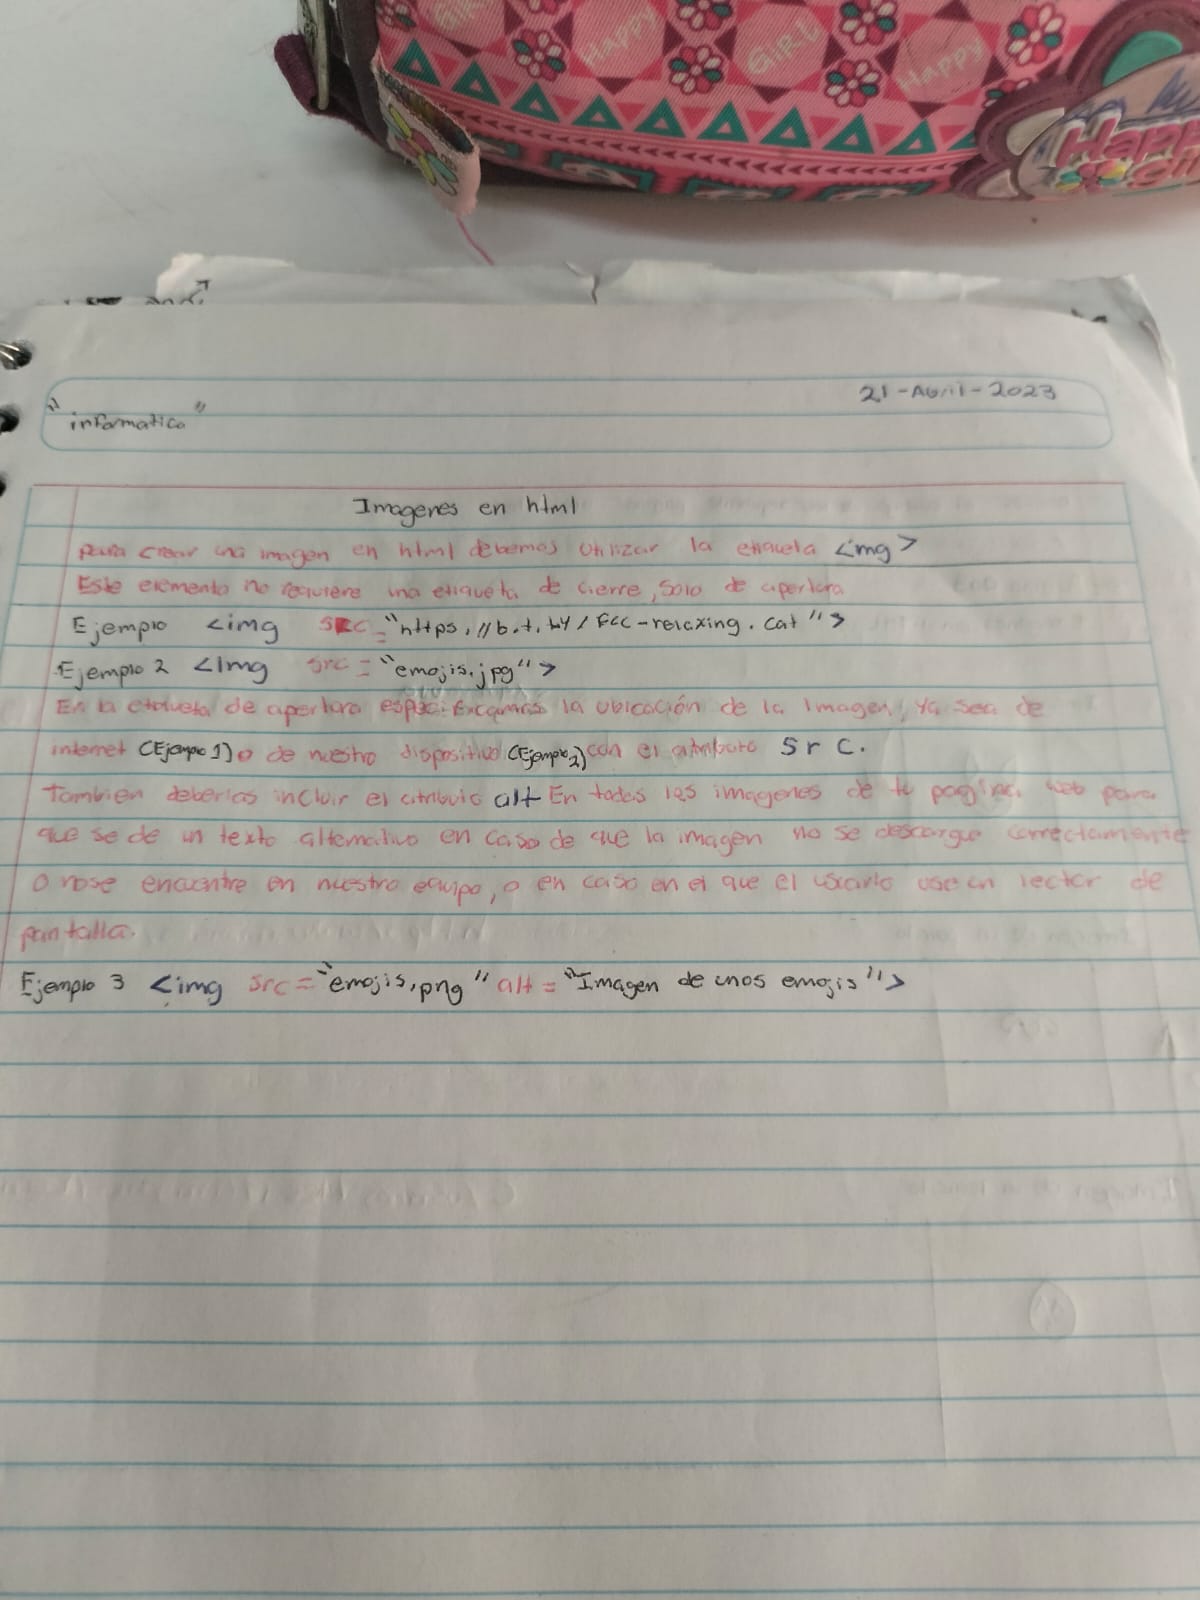 GIRL
HAPPY
GIRL
Happy
Happy
21-Abril-2023
"informatica"
Imagenes en html
para crear una imagen en html debemos utilizar la etiqueta <img>
Este elemento no requiere una etiqueta de cierre, solo de apertura
Ejemplo <img src="https://bit.ly/FCC-relaxing.cat">
Ejemplo 2 <Img src="emojis.jpg">
En la etiqueta de apertura especificamos la ubicación de la imagen, ya sea de
internet (Ejemplo 1) o de nuestro dispositivo (Ejemplo 2) con el atributo src.
Tambien deberias incluir el atributo alt En todas las imagenes de tu pagina web para
que se de un texto alternativo en caso de que la imagen no se descargue correctamente
o nose encuentre en nuestro equipo, o en caso en el que el usuario use un lector de
pantalla.
Ejemplo 3 <img src="emojis.png" alt="Imagen de unos emojis">